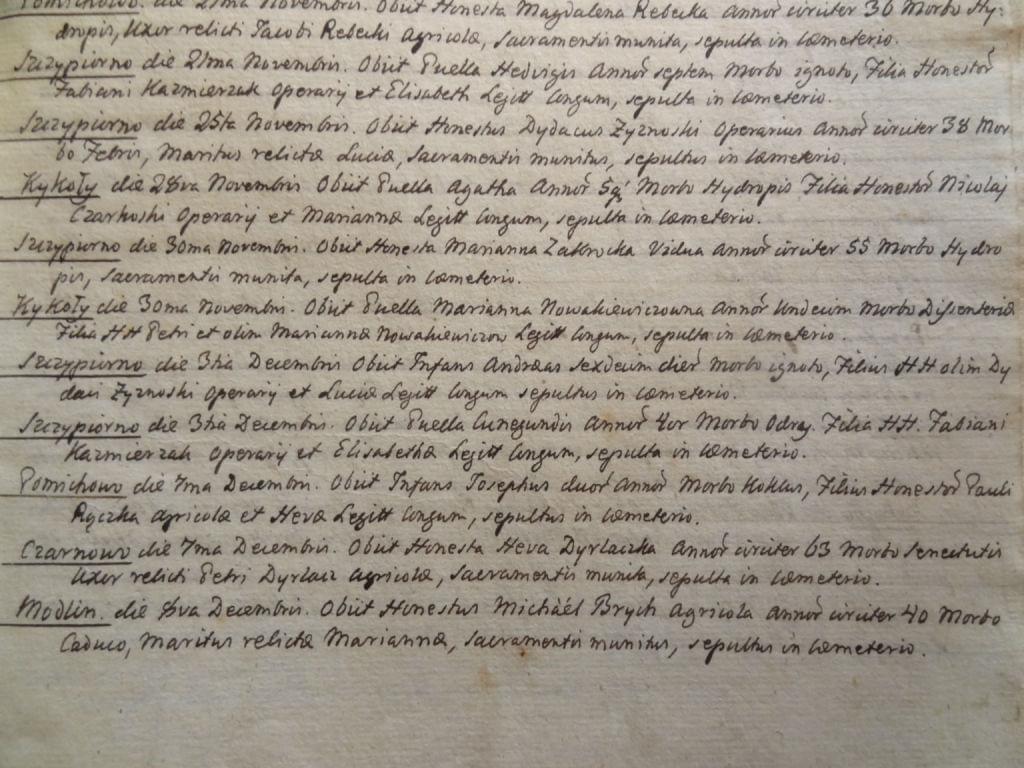 Pomichowo. die 21ma Novembris. Obiit Honesta Magdalena Rebecka Annor̃ circiter 36 Morbo Hy-
dropis, Uxor relicti Jacobi Rebecki Agricolæ, Sacramentis munita, sepulta in Cæmeterio.
Szczypiorno die 21ma Novembris. Obiit Puella Hedvigis Annor̃ septem Morbo ignoto, Filia Honestor̃
Fabiani Kazmierzak Operarij et Elisabeth Legitt Conjum, sepulta in Cæmeterio.
Szczypiorno die 25ta Novembris. Obiit Honestus Dydacus Zyznoski Operarius Annor̃ circiter 38 Mor
bo Febris, Maritus relictæ Luciæ, Sacramentis munitus, sepultus in Cæmeterio.
Kykoły die 28va Novembris Obiit Puella Agatha Annor̃ Morbo Hydropis Filia Honestor̃ Nicolaj
Czarkoski Operarij et Mariannæ Legitt Conjum, sepulta in Cæmeterio.
Szczypiorno die 30ma Novembris. Obiit Honesta Marianna Zakrocka Vidua Annor̃ circiter 55 Morbo Hydro
pis, Sacramentis munita, sepulta in Cæmeterio.
Kykoły die 30ma Novembris. Obiit Puella Marianna Nowakiewiczowna Annor̃ Undecim Morbo Dissenteriæ
Filia HH Petri et olim Mariannæ Nowakiewiczow Legitt Conjum, sepulta in Cæmeterio.
Szczypiorno die 3tia Decembris Obiit Infans Andræas Sexdecim dier̃ Morbo ignoto, Filius HH olim Dy
daci Zyznoski Operarij et Luciæ Legitt Conjum sepultus in Cæmeterio.
Szczypiorno die 3tia Decembris. Obiit Puella Cunegundis Annor̃ 4or Morbo Odry. Filia HH. Fabiani
Kazmierzak Operarij et Elisabethæ Legitt Conjum, sepulta in Cæmeterio.
Pomichowo die 7ma Decembris. Obiit Infans Josephus duor̃ Annor̃ Morbo Koklus, Filius Honestor̃ Pauli
Ryczka Agricolæ et Hevæ Legitt Conjum, sepultus in Cæmeterio.
Czarnowo die 7ma Decembris. Obiit Honesta Heva Dyrlaczka Annor̃ circiter 63 Morbo Senectutis
Uxor relicti Petri Dyrlacz Agricolæ, Sacramentis munita, sepulta in Cæmeterio.
Modlin. die 8va Decembris. Obiit Honestus Michäel Brych Agricola Annor̃ circiter 40 Morbo
Caduco, Maritus relictæ Mariannæ, Sacramentis munitus, sepultus in Cæmeterio.